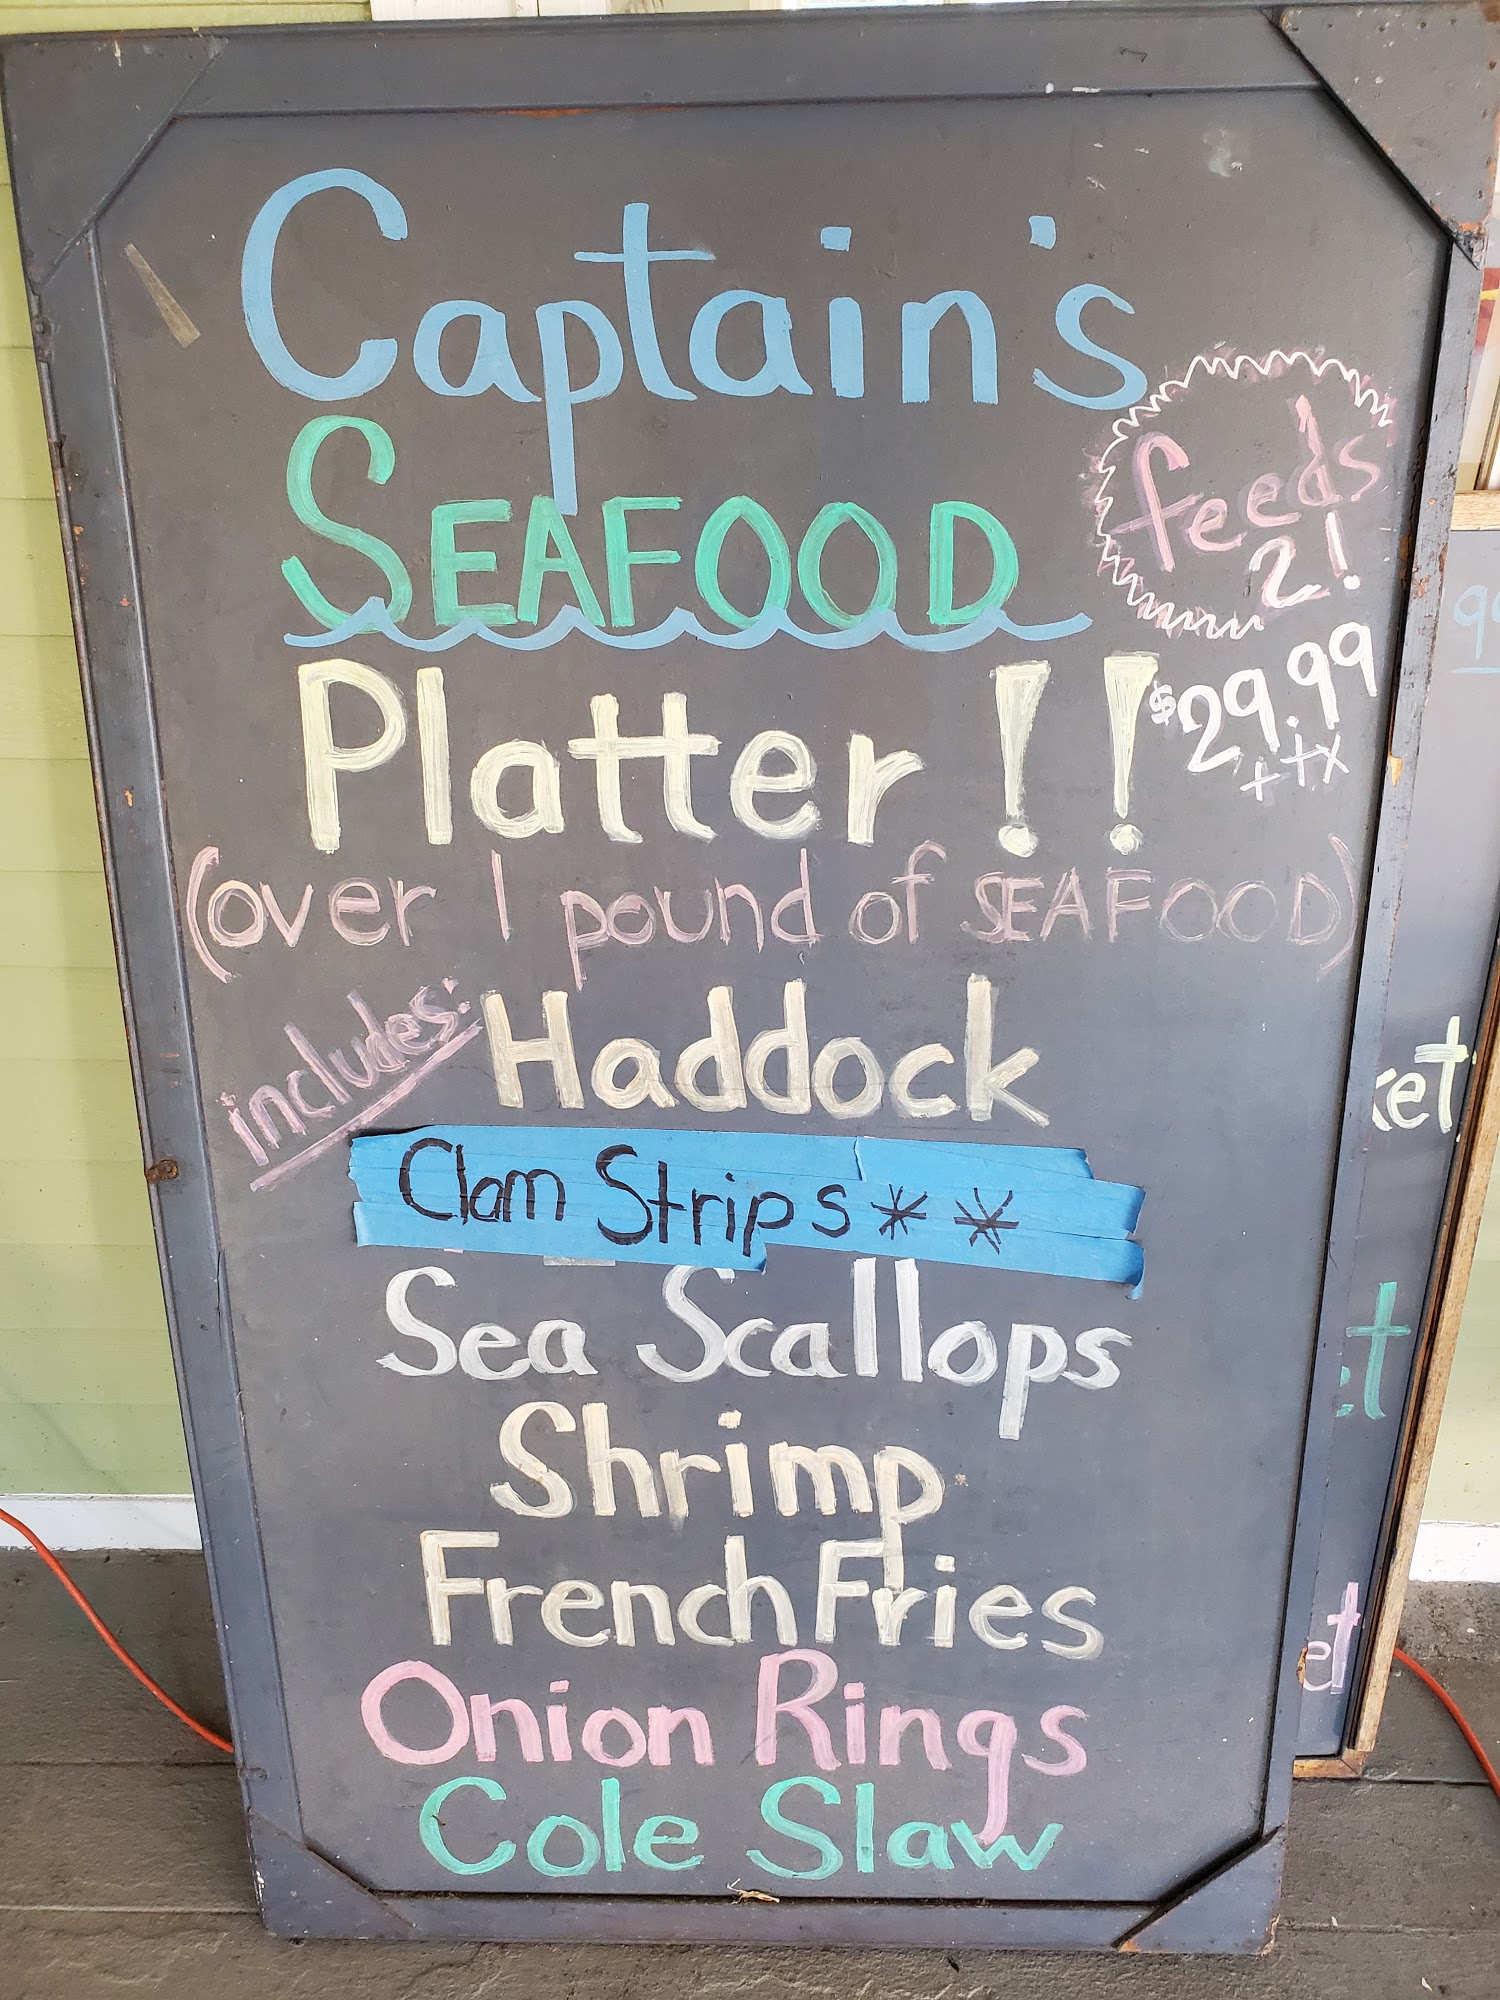 Captain's
SEAFOOD
feeds
2!
Platter!!
$29.99
+++x
(over 1 pound of SEAFOOD)
includes:
Haddock
Clam Strips**
Sea Scallops
Shrimp
French Fries
Onion Rings
Cole Slaw